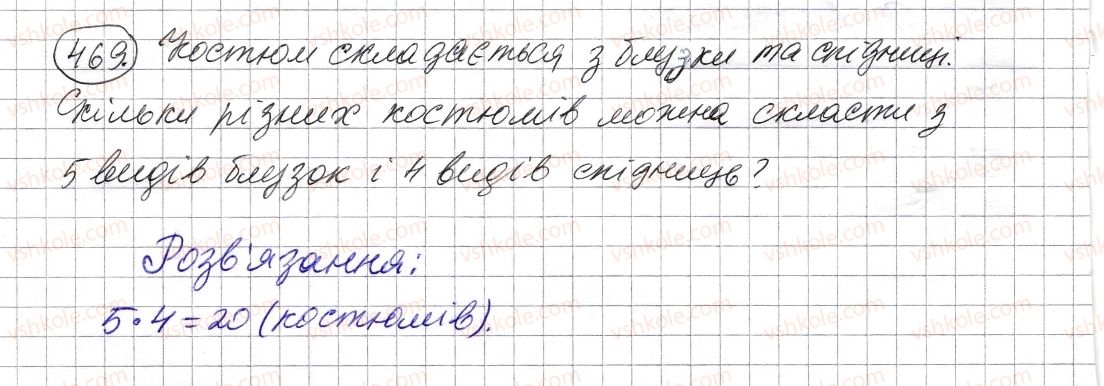 469. Костюм складається з блузки та спідниці.
Скільки різних костюмів можна скласти з
5 видів блузок і 4 видів спідниць?
Розв'язання:
5·4=20 (костюмів).